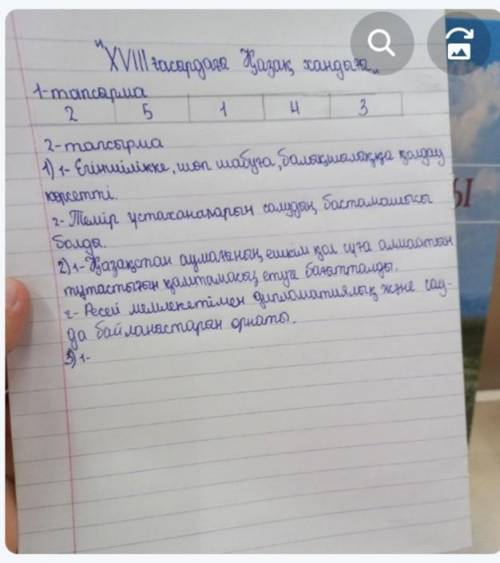 "XVIII ғасырдағы Қазақ хандығы"
1-тапсырма
2 5 1 4 3
2-тапсырма
1) 1- Егіншілікке, шөп шабуға, балықшылыққа қолдау
көрсетті.
2- Темір ұстаханаларын салудың бастамашысы
болды.
2) 1- Қазақстан аумағының ешкім қол сұға алмайтын
тұтастығын қамтамасыз етуге бағытталды.
2- Ресей мемлекетімен дипломатиялық және сау-
да байланыстарын орнаты.
3) 1-
Ы